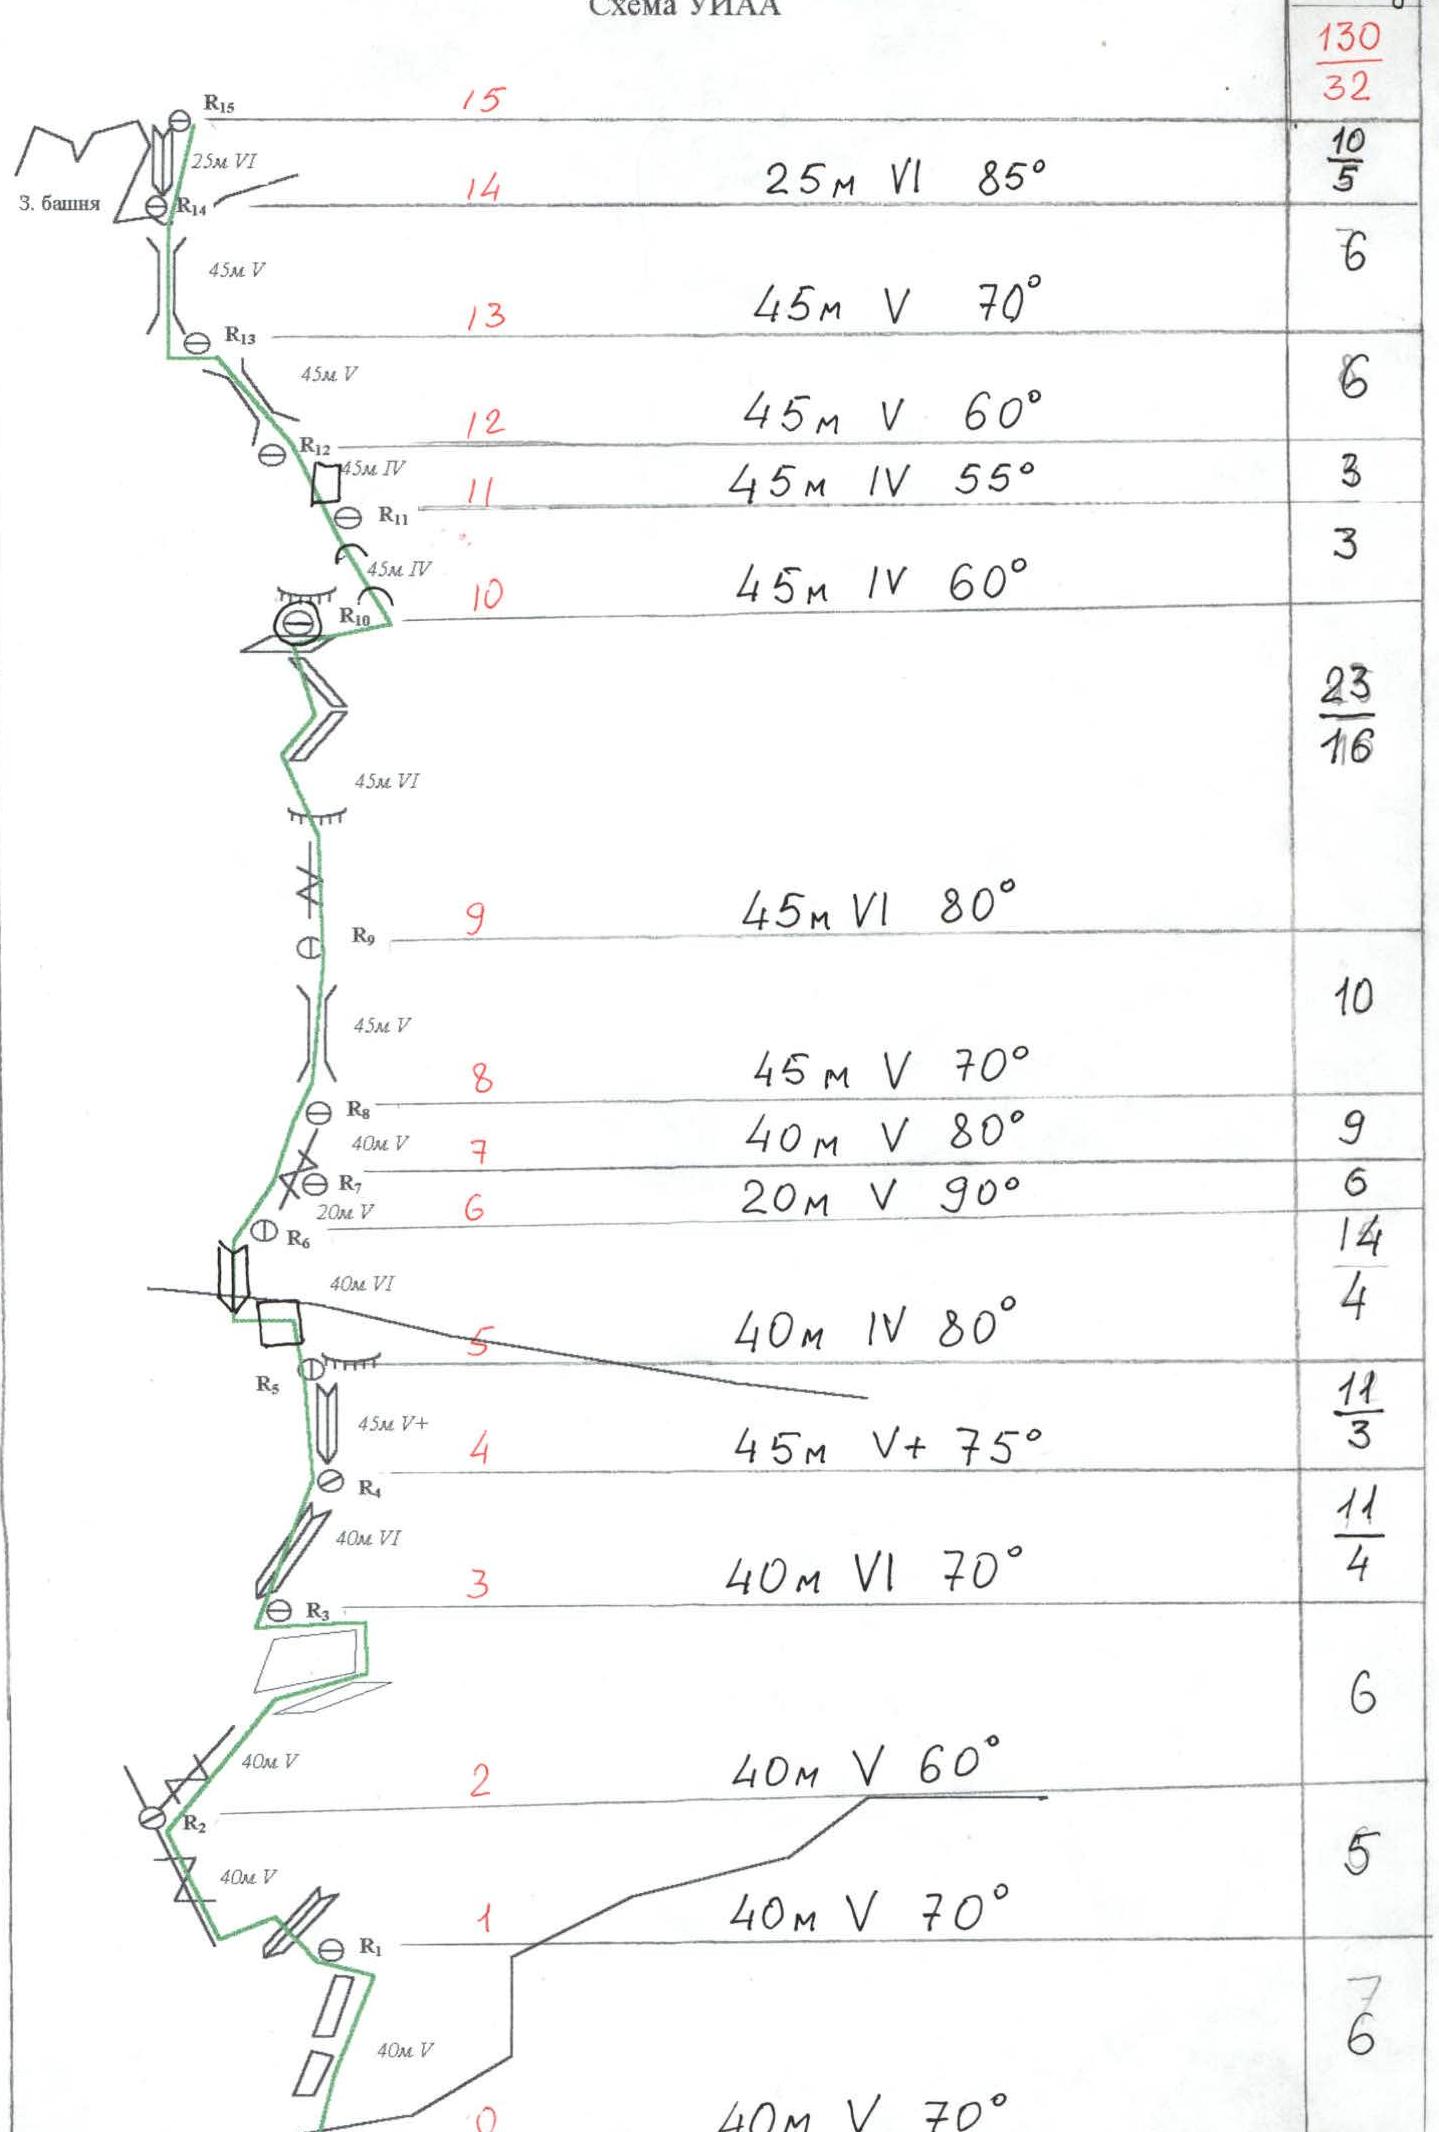 Схема УИАА
130
32
R15
15
10
5
25м VI
25м VI 85°
З. башня
R14
14
6
45м V
45м V 70°
R13
13
6
45м V
45м V 60°
R12
12
45м IV
45м IV 55°
3
R11
11
3
45м IV
45м IV 60°
R10
10
23
16
45м VI
45м VI 80°
R9
9
10
45м V
45м V 70°
R8
8
40м V
40м V 80°
9
R7
7
20м V
20м V 90°
6
R6
6
14
4
40м VI
40м IV 80°
R5
5
11
3
45м V+
45м V+ 75°
R4
4
11
4
40м VI
40м VI 70°
R3
3
6
40м V
40м V 60°
R2
2
5
40м V
40м V 70°
R1
1
7
6
40м V
0
40м V 70°